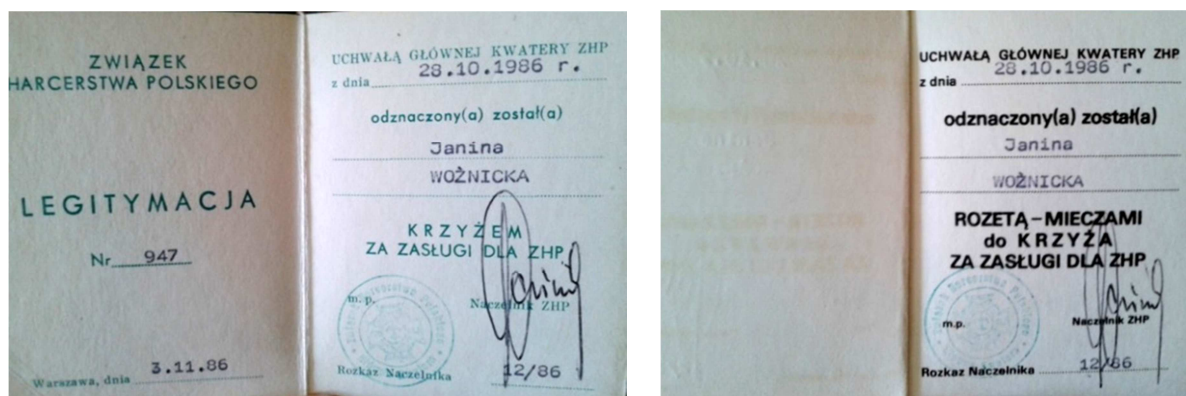 ZWIĄZEK
HARCERSTWA POLSKIEGO
LEGITYMACJA
Nr 947
Warszawa, dnia 3.11.86
UCHWAŁĄ GŁÓWNEJ KWATERY ZHP
z dnia 28.10.1986 r.
odznaczony(a) został(a)
Janina
WOŹNICKA
KRZYŻEM
ZA ZASŁUGI DLA ZHP
m. p.
Naczelnik ZHP
Rozkaz Naczelnika 12/86
UCHWAŁĄ GŁÓWNEJ KWATERY ZHP
z dnia 28.10.1986 r.
odznaczony(a) został(a)
Janina
WOŹNICKA
ROZETĄ – MIECZAMI
do KRZYŻA
ZA ZASŁUGI DLA ZHP
m.p.
Naczelnik ZHP
Rozkaz Naczelnika 12/86